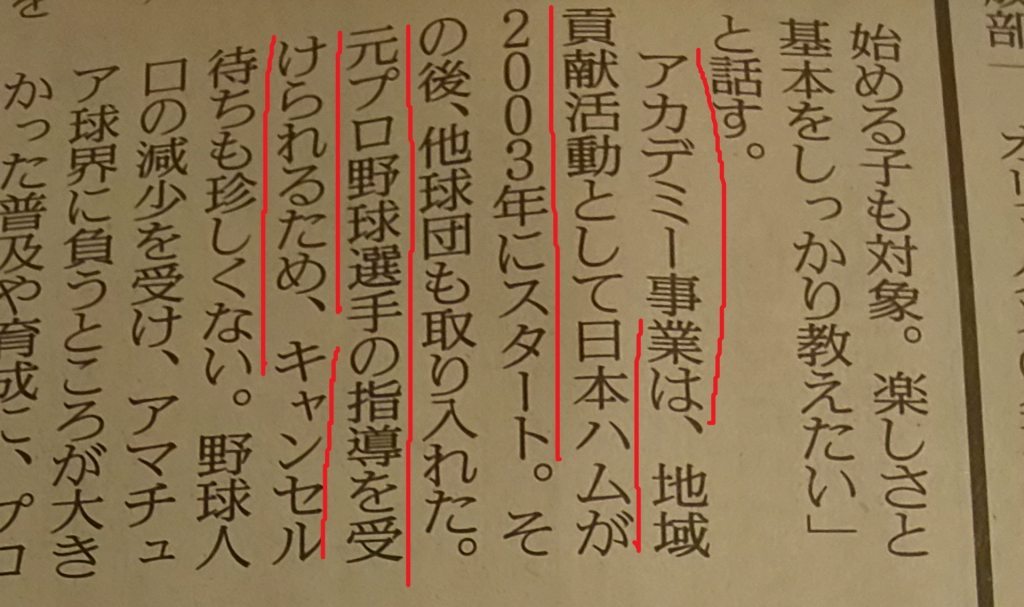 始める子も対象。楽しさと
基本をしっかり教えたい」
と話す。
アカデミー事業は、地域
貢献活動として日本ハムが
2003年にスタート。そ
の後、他球団も取り入れた。
元プロ野球選手の指導を受
けられるため、キャンセル
待ちも珍しくない。野球人
口の減少を受け、アマチュ
ア球界に負うところが大き
かった普及や育成に、プロ
を